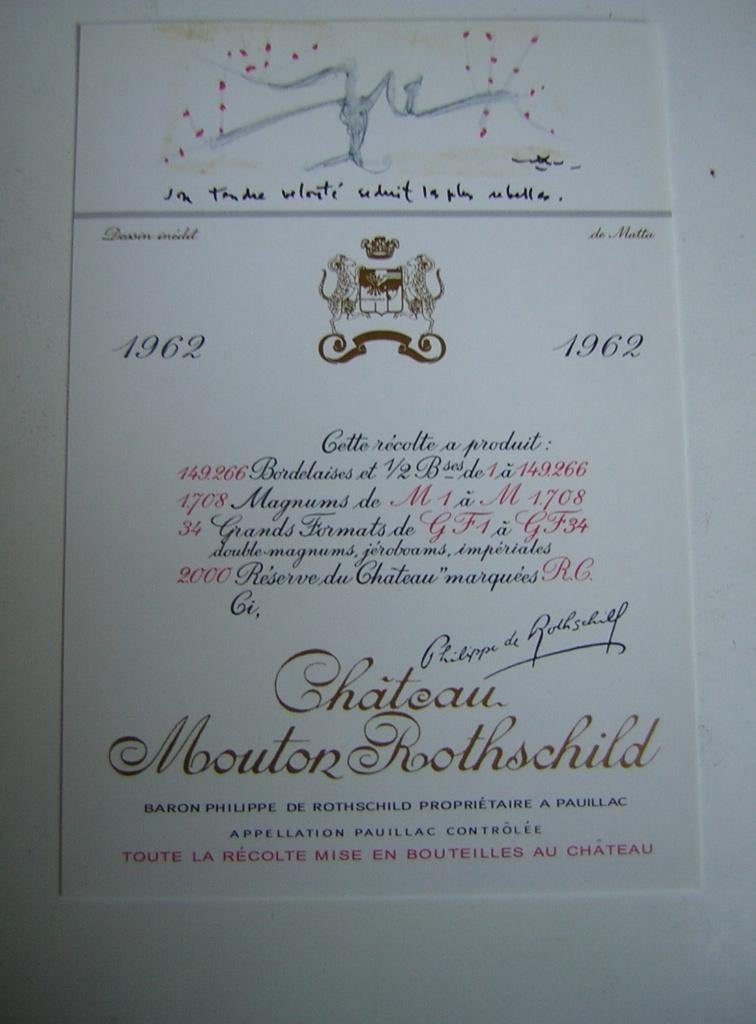 son tendre velouté séduit les plus rebelles.
Dessin inédit de Matta
1962 1962
Cette récolte a produit :
149.266 Bordelaises et 1/2 Bses de 1 à 149.266
1.708 Magnums de M 1 à M 1.708
34 Grands Formats de G F 1 à G F 34
double-magnums, jéroboams, impériales
2000 Réserve du Château" marquées R.C.
Ci,
Philippe de Rothschild
Château
Mouton Rothschild
BARON PHILIPPE DE ROTHSCHILD PROPRIÉTAIRE A PAUILLAC
APPELLATION PAUILLAC CONTRÔLÉE
TOUTE LA RÉCOLTE MISE EN BOUTEILLES AU CHÂTEAU